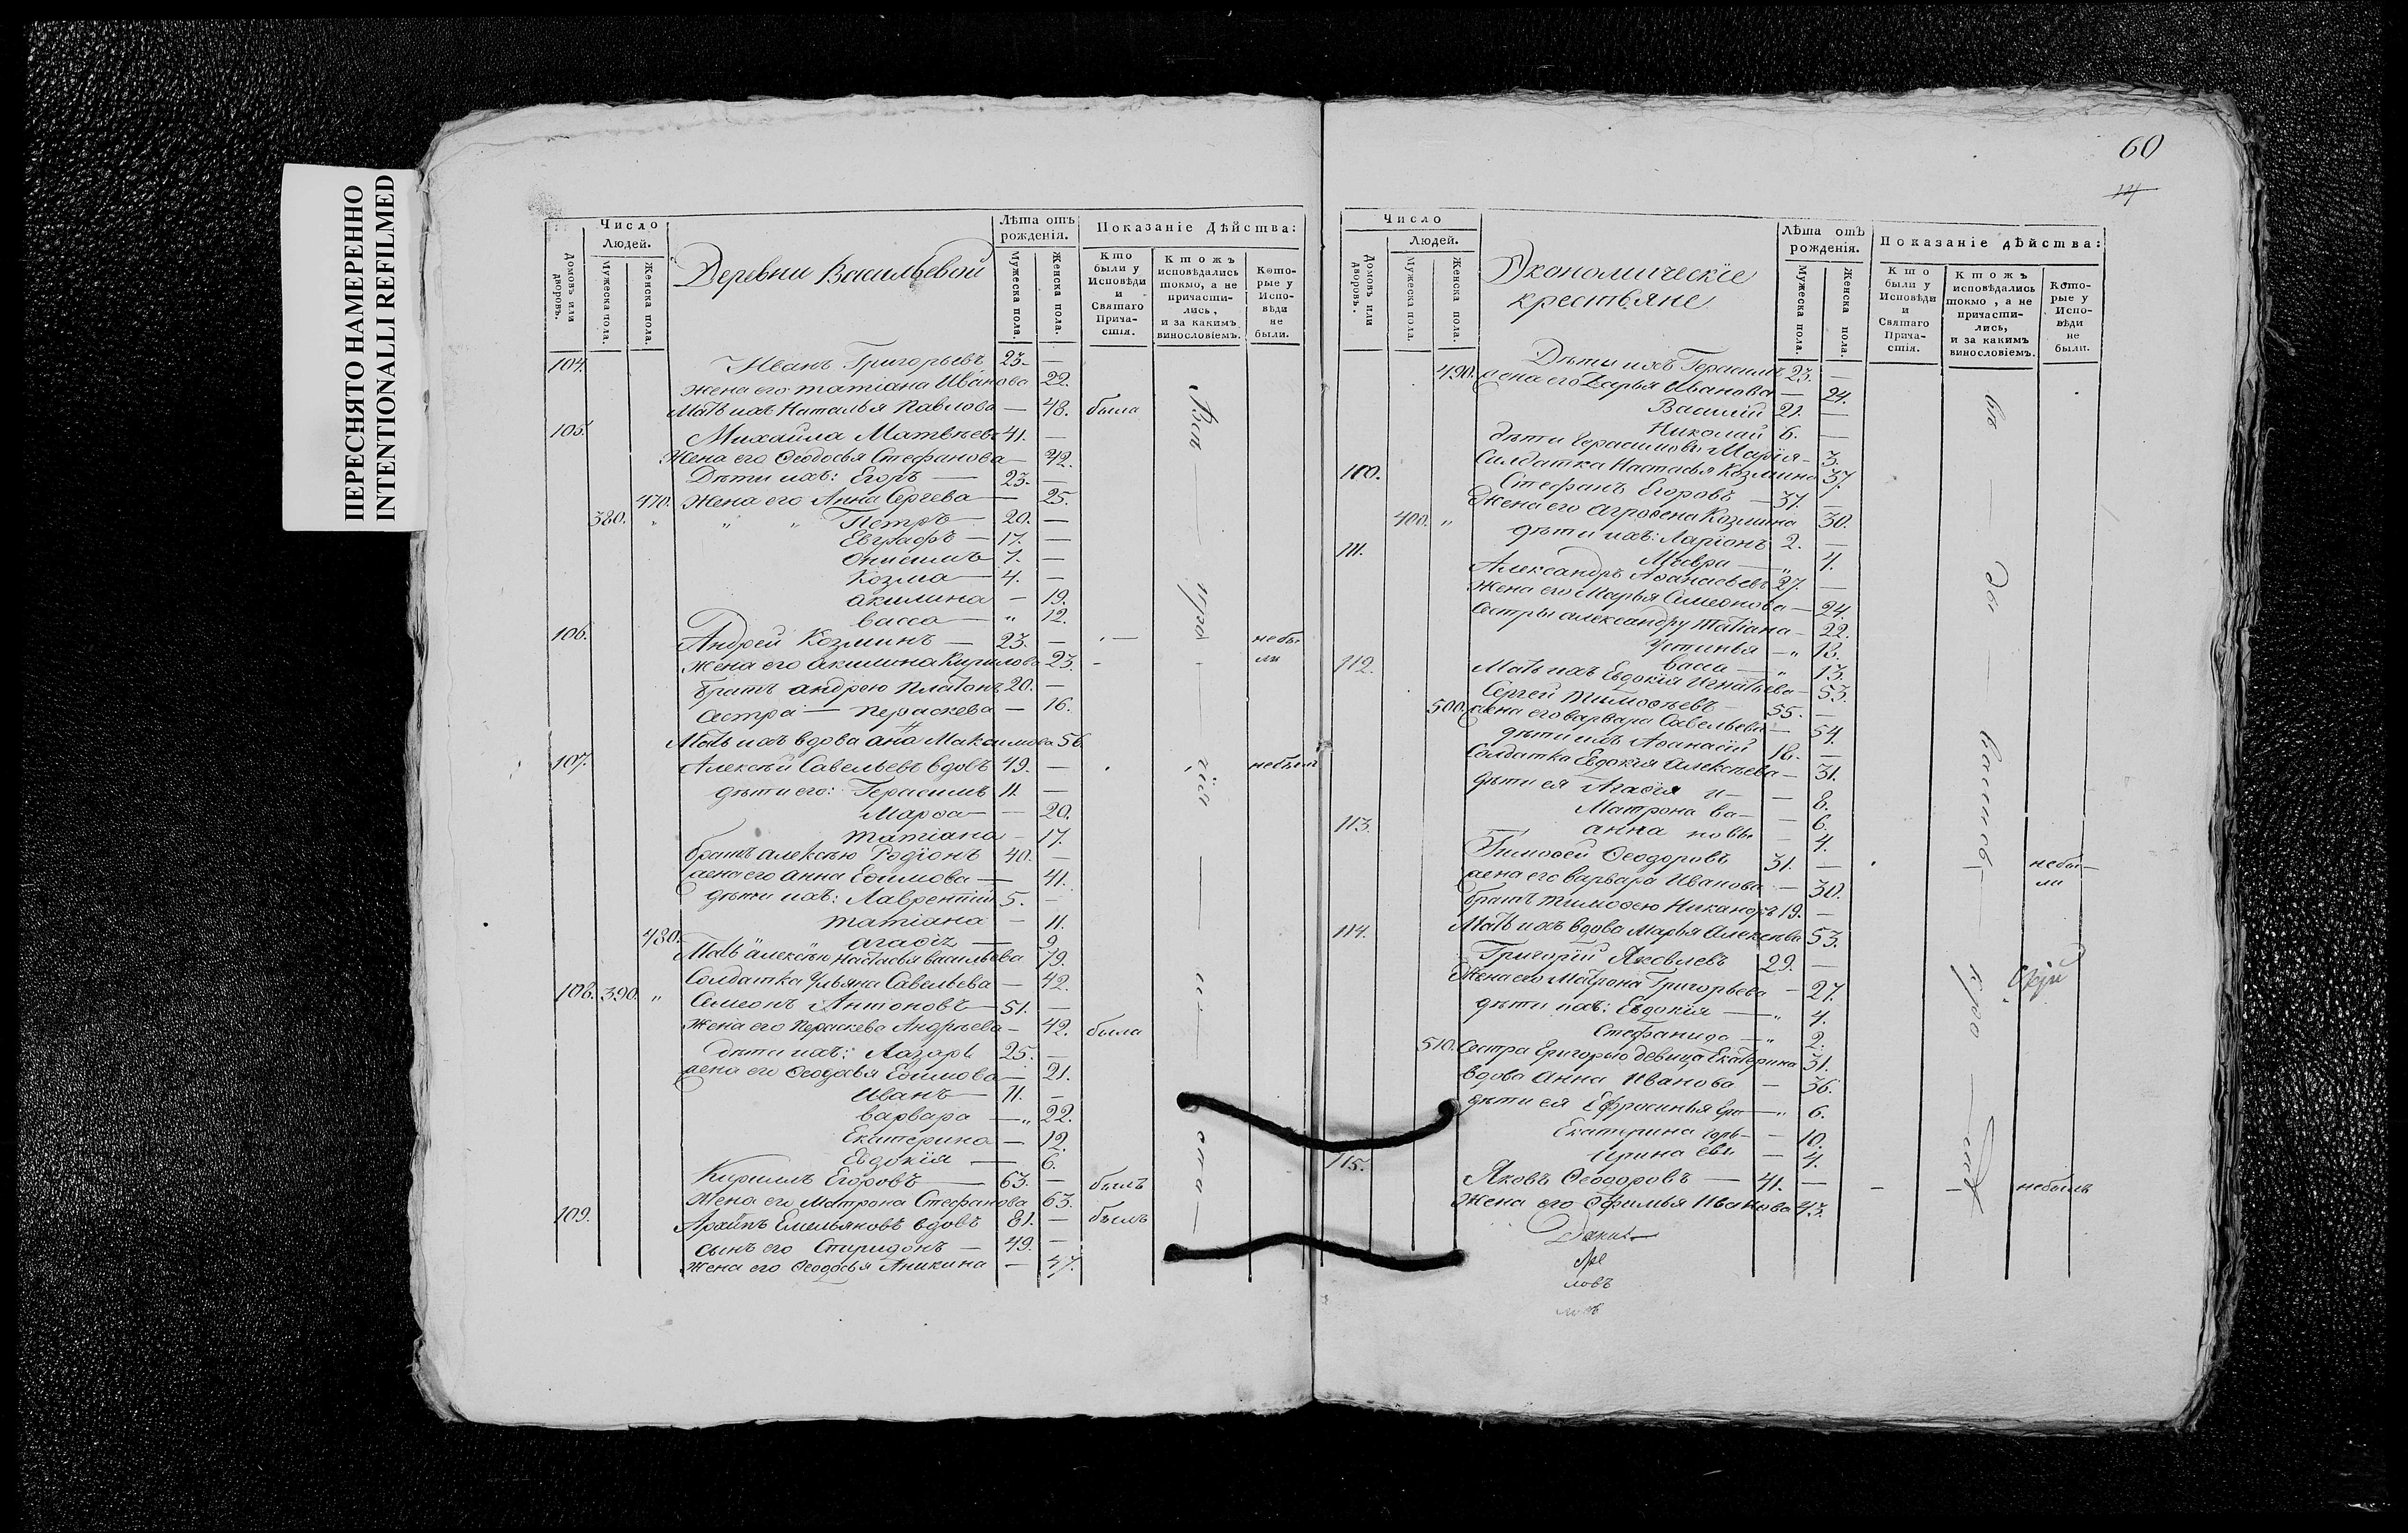 ПЕРЕСНЯТО НАМЕРЕННО
INTENTIONALLI REFILMED
Число
Людей.
Домовъ или дворовъ.
Мужеска пола.
Женска пола.
Деревни Васильевой
Лѣта отъ рожденія.
Мужеска пола.
Женска пола.
Показаніе Дѣйства:
Кто были у Исповѣди и Святаго Прича-стія.
Ктожъ исповѣдались токмо, а не причасти-лись, и за какимъ винословіемъ.
Кото-рые у Испо-вѣди не были.
104. Иванъ Григорьевъ 23. —
Жена его татіана Иванова 22.
Мать ихъ Наталья Павлова — 48. была
105. Михаила Матвѣевъ 41. —
Жена его Ѳеодосья Стефанова — 42.
Дѣти ихъ: Егоръ — 23. —
470. Жена его Анна Сергеева — 25.
380. " " " Петръ — 20. —
Евграфъ — 17. —
Онисимъ 7. —
Козма — 4. —
акилина — 19.
васса — " 12.
106. Андрей Козминъ — 23. — небы
Жена его акилина Кирилова 23. - ли
братъ андрею Платонъ 20. —
сестра — Пераскева — 16.
Мать ихъ вдова ана Максимова 56.
107. Алексѣй Савельевъ вдовъ 49. — небылъ
дѣти его: Герасимъ 11. —
Марѳа — — 20.
татіана — 17.
братъ алексѣю Родіонъ 40. —
жена его анна Ефимова — 41.
дѣти ихъ: Лаврентій 5. —
татіана — 11.
480. агаѳія — 9.
Мать алексѣю Настасья васильева 79.
Солдатка Ульяна Савельева — 42.
108. 390. " Симеонъ Антоновъ — 51. —
Жена его Пераскева Андрѣева — 42. была
дѣти ихъ: Лазарь 25. —
жена его Ѳеодосья Ефимова — 21.
Иванъ — 11. —
варвара — " 22.
Екатерина — 12.
Евдокія — 6.
Кирилъ Егоровъ — 63. — былъ
Жена его Матрона Стефанова 63.
109. Архипъ Емельяновъ вдовъ 81. — былъ
сынъ его Спиридонъ — 49. —
Жена его Ѳеодосья Аникина — 47.
60
Число
Людей.
Домовъ или дворовъ.
Мужеска пола.
Женска пола.
Экономическіе
крестьяне
Лѣта отъ рожденія.
Мужеска пола.
Женска пола.
Показаніе дѣйства:
Кто были у Исповѣди и Святаго Прича-стія.
Ктожъ исповѣдались токмо, а не причасти-лись, и за какимъ винословіемъ.
Кото-рые у Испо-вѣди не были.
Дѣти ихъ Герасимъ 23. —
490. жена его Дарья Иванова — 24.
Василій 21. —
Николай 6. —
дѣти Герасимовы Марія — 3.
Солдатка Настасья Козмина 37.
110. Стефанъ Егоровъ — 37. —
Жена его агрофена Козмина 30.
400. " дѣти ихъ: Ларіонъ 2. —
Мавра — " 4.
111. Александръ Аѳанасьевъ 27. —
Жена его Марья Симеонова — 24.
Сестры александру татіана — 22.
Устинья — " 18.
васса — " 13.
Мать ихъ Евдокія Игнатьева — 53.
112. Сергей тимоѳѣевъ — 55. —
500. жена его варвара Савельева — 54.
дѣти ихъ Аѳанасій 18. —
Солдатка Евдокія алексѣева — 31.
дѣти ея Агафія и — — 8.
Матрона ва — — 6.
анна новы — 4.
113. Тимофей Ѳеодоровъ 31. — небы-
жена его варвара Иванова — 30. ли
братъ тимоѳею Никаноръ 19. —
Мать ихъ вдова Марья алексѣева 53.
114. Григорій Яковлевъ 29. —
Жена его Матрона Григорьева — 27.
дѣти ихъ: Евдокія — " 4.
Стефанида — " 2.
510. Сестра Григорью девица Екатерина 31.
вдова анна Иванова — 36.
дѣти ея Ефросинья Гри — " 6.
Екатерина горь — — 10.
Ирина евы — 4.
115. Яковъ Ѳеодоровъ — 41. — — небылъ
Жена его Офимья Иванова 43.
ловъ